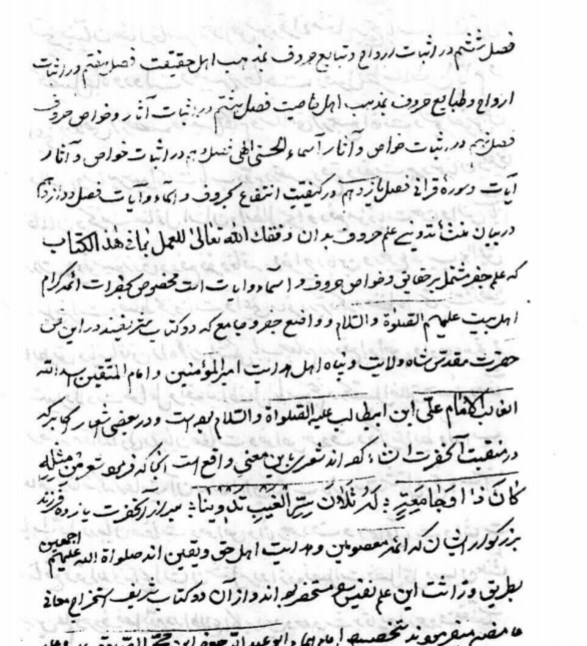 فصل ششم در اثبات ارواح و تبایع حروف بمذهب اهل حقیقت فصل هفتم در اثبات
ارواح و طبایع حروف بمذهب اهل خاصیت فصل هشتم در اثبات آثار و خواص حروف
فصل نهم در اثبات خواص و آثار اسماء الحسنی الهی فصل دهم در اثبات خواص و آثار
آیات و سورۀ قرانی فصل یازدهم در کیفیت انتفاع بحروف و اسماء و آیات فصل دوازدهم
در بیان تدوین علم حروف بدان وفقک الله تعالی للعمل بما فی هذا الکتاب
که علم جفر مشتمل بر حقایق و خواص حروف و اسماء و آیات است مخصوص بحضرات ائمه کرام
اهل بیت علیهم الصلوة والسلام و واضع جفر و جامع که دو کتاب شریفند در این فن
حضرت مقدس شاه ولایت و پناه اهل هدایت امیر المؤمنین و امام المتقین اسد الله
الغالب الامام علی ابن ابیطالب علیه الصلواة والسلام است و در بعضی اشعار که
در منقبت آنحضرت شعر این معنی واقع است شعر من مثله
کان ذا جفر و جامعة له تدوین سر الغیب تدوینا بعد از آنحضرت یازده فرزند
بزرگوار ایشان که ائمه معصومین و هدایت اهل حق و یقین اند صلواة الله علیهم اجمعین
بطریق وراثت این علم نفیس و از آن دو کتاب شریف استخراج معانی